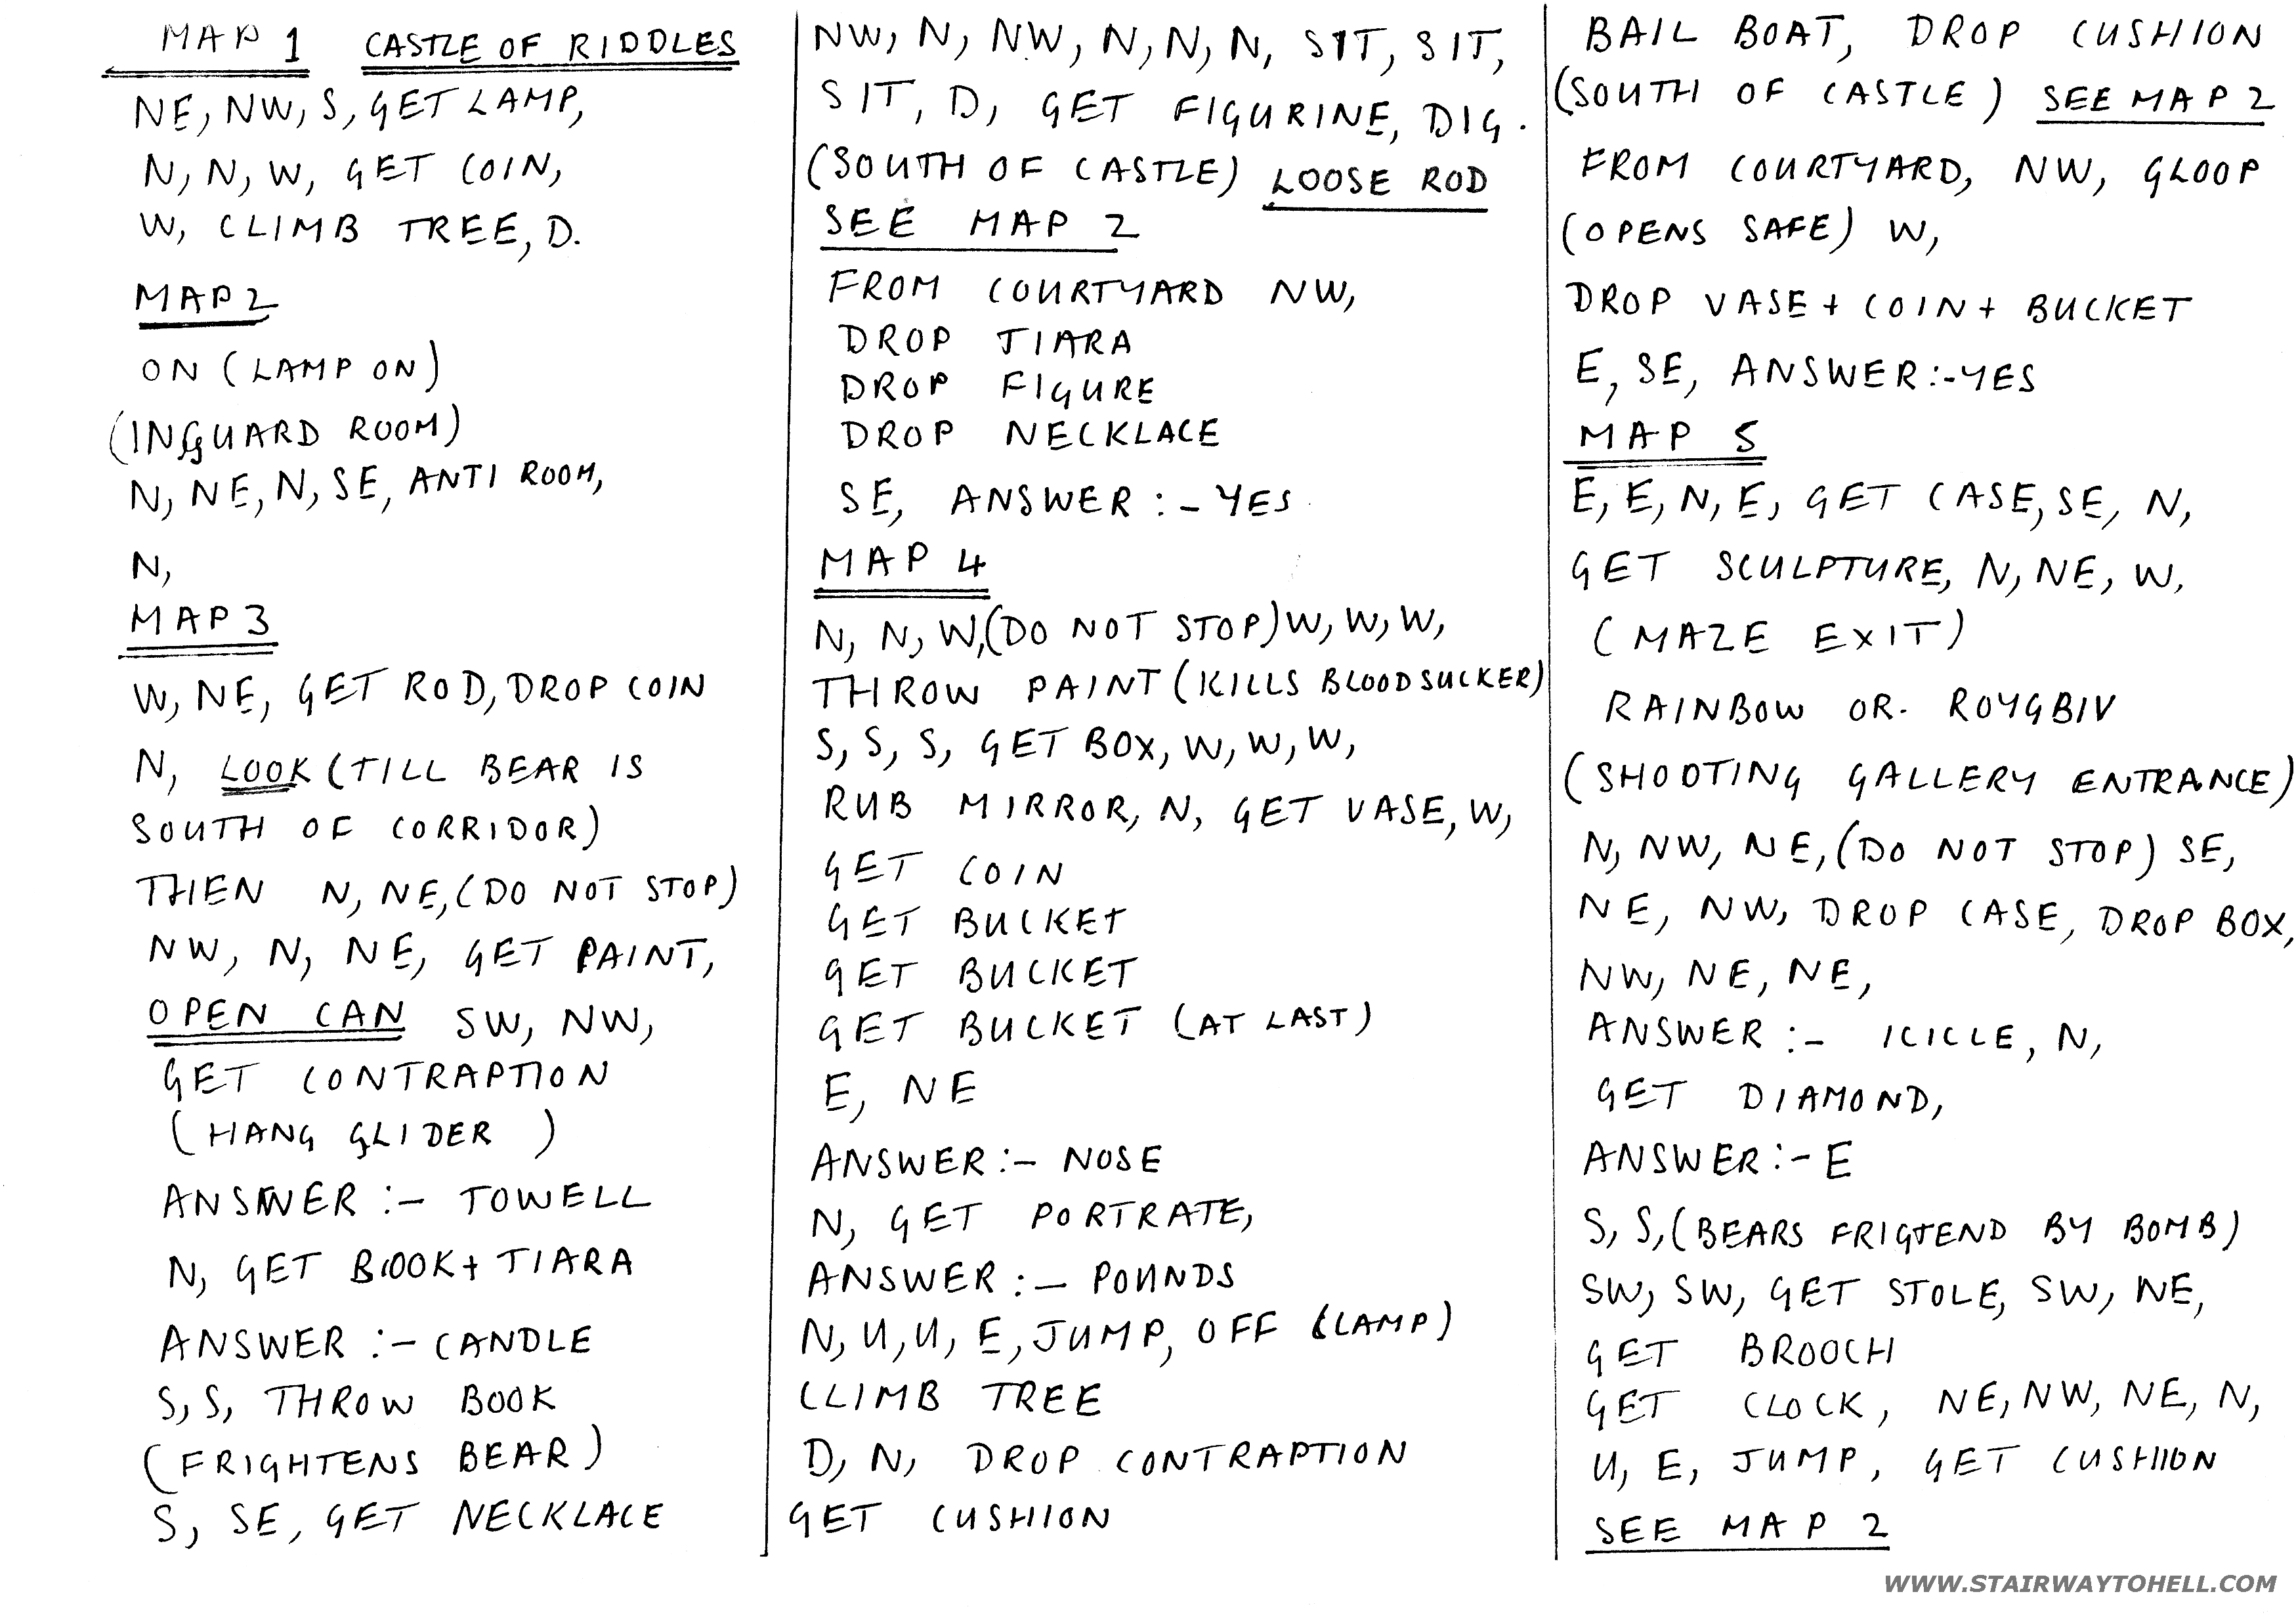 MAP 1 CASTLE OF RIDDLES
NE, NW, S, GET LAMP,
N, N, W, GET COIN,
W, CLIMB TREE, D.
MAP 2
ON (LAMP ON)
(IN GUARD ROOM)
N, NE, N, SE, ANTI ROOM,
N,
MAP 3
W, NE, GET ROD, DROP COIN
N, LOOK (TILL BEAR IS
SOUTH OF CORRIDOR)
THEN N, NE, (DO NOT STOP)
NW, N, NE, GET PAINT,
OPEN CAN SW, NW,
GET CONTRAPTION
(HANG GLIDER )
ANSWER :- TOWELL
N, GET BOOK + TIARA
ANSWER :- CANDLE
S, S, THROW BOOK
(FRIGHTENS BEAR)
S, SE, GET NECKLACE
NW, N, NW, N, N, N, SIT, SIT,
SIT, D, GET FIGURINE, DIG.
(SOUTH OF CASTLE) LOOSE ROD
SEE MAP 2
FROM COURTYARD NW,
DROP TIARA
DROP FIGURE
DROP NECKLACE
SE, ANSWER :- YES
MAP 4
N, N, W, (DO NOT STOP) W, W, W,
THROW PAINT (KILLS BLOODSUCKER)
S, S, S, GET BOX, W, W, W,
RUB MIRROR, N, GET VASE, W,
GET COIN
GET BUCKET
GET BUCKET
GET BUCKET (AT LAST)
E, NE
ANSWER :- NOSE
N, GET PORTRATE,
ANSWER :- POUNDS
N, U, U, E, JUMP, OFF (LAMP)
CLIMB TREE
D, N, DROP CONTRAPTION
GET CUSHION
BAIL BOAT, DROP CUSHION
(SOUTH OF CASTLE) SEE MAP 2
FROM COURTYARD, NW, GLOOP
(OPENS SAFE) W,
DROP VASE + COIN + BUCKET
E, SE, ANSWER :- YES
MAP 5
E, E, N, E, GET CASE, SE, N,
GET SCULPTURE, N, NE, W,
(MAZE EXIT)
RAINBOW OR. ROYGBIV
(SHOOTING GALLERY ENTRANCE)
N, NW, NE, (DO NOT STOP) SE,
NE, NW, DROP CASE, DROP BOX,
NW, NE, NE,
ANSWER :- ICICLE, N,
GET DIAMOND,
ANSWER :- E
S, S, (BEARS FRIGTEND BY BOMB)
SW, SW, GET STOLE, SW, NE,
GET BROOCH
GET CLOCK, NE, NW, NE, N,
U, E, JUMP, GET CUSHION
SEE MAP 2
WWW.STAIRWAYTOHELL.COM